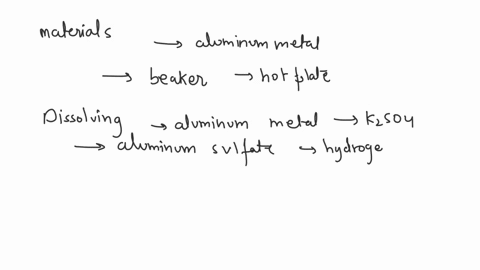 materials
→ aluminum metal
→ beaker → hot plate
Dissolving → aluminum metal → K₂SO4
→ aluminum sulfate → hydroge